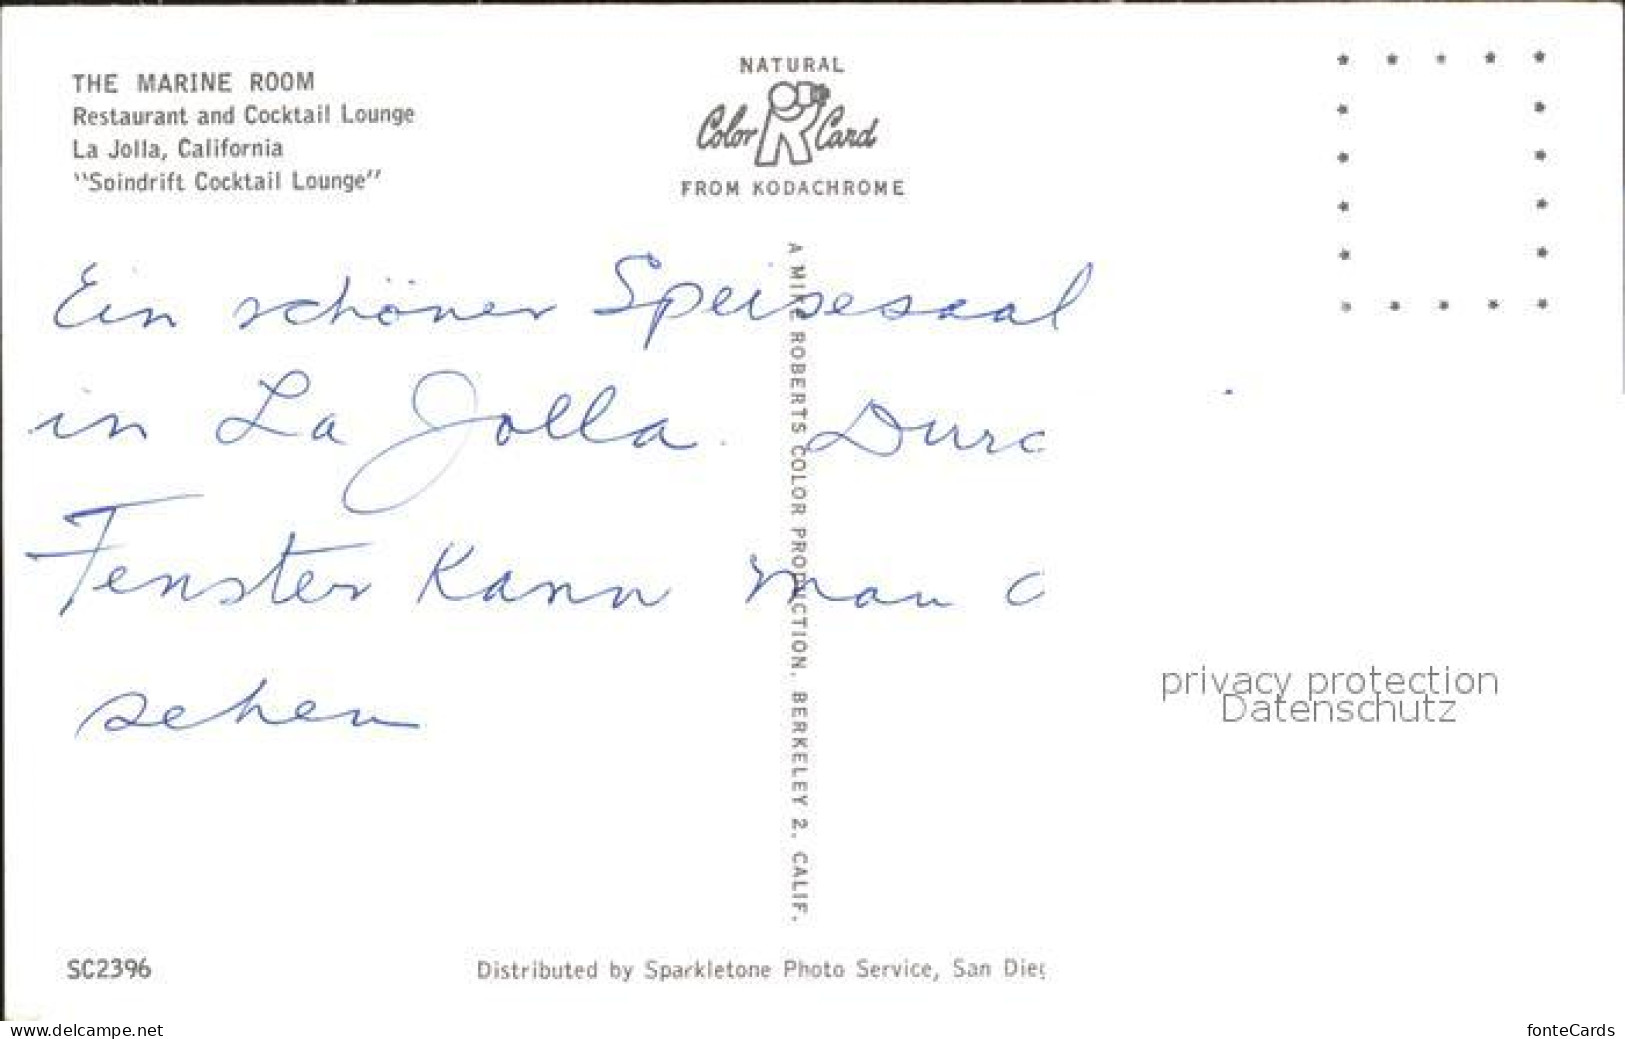 THE MARINE ROOM
Restaurant and Cocktail Lounge
La Jolla, California
"Soindrift Cocktail Lounge"
NATURAL
Color Card
FROM KODACHROME
Ein schöner Speisesaal
in La Jolla. Durc
Fenster kann man
sehen
A MIKE ROBERTS COLOR PRODUCTION, BERKELEY 2, CALIF.
privacy protection
Datenschutz
SC2396
Distributed by Sparkletone Photo Service, San Dieg
www.delcampe.net
fonteCards